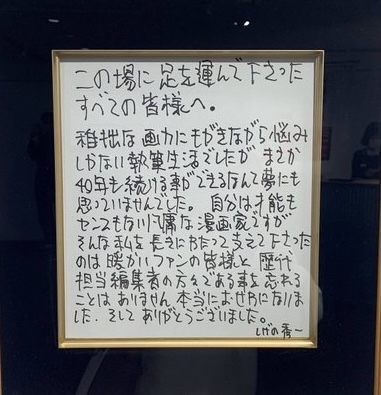 この場に足を運んで下さった
すべての皆様へ。
稚拙な画力にもがきながら悩み
しかない執筆生活でしたが まさか
40年も続ける事ができるなんて夢にも
思っていませんでした。自分は才能も
センスもない凡庸な漫画家ですが
そんな私を長きにわたって支えて下さった
のは暖かいファンの皆様と 歴代
担当編集者の方々である事を忘れる
ことは ありません 本当におせわになりま
した。そして ありがとうございました。
しげの秀一